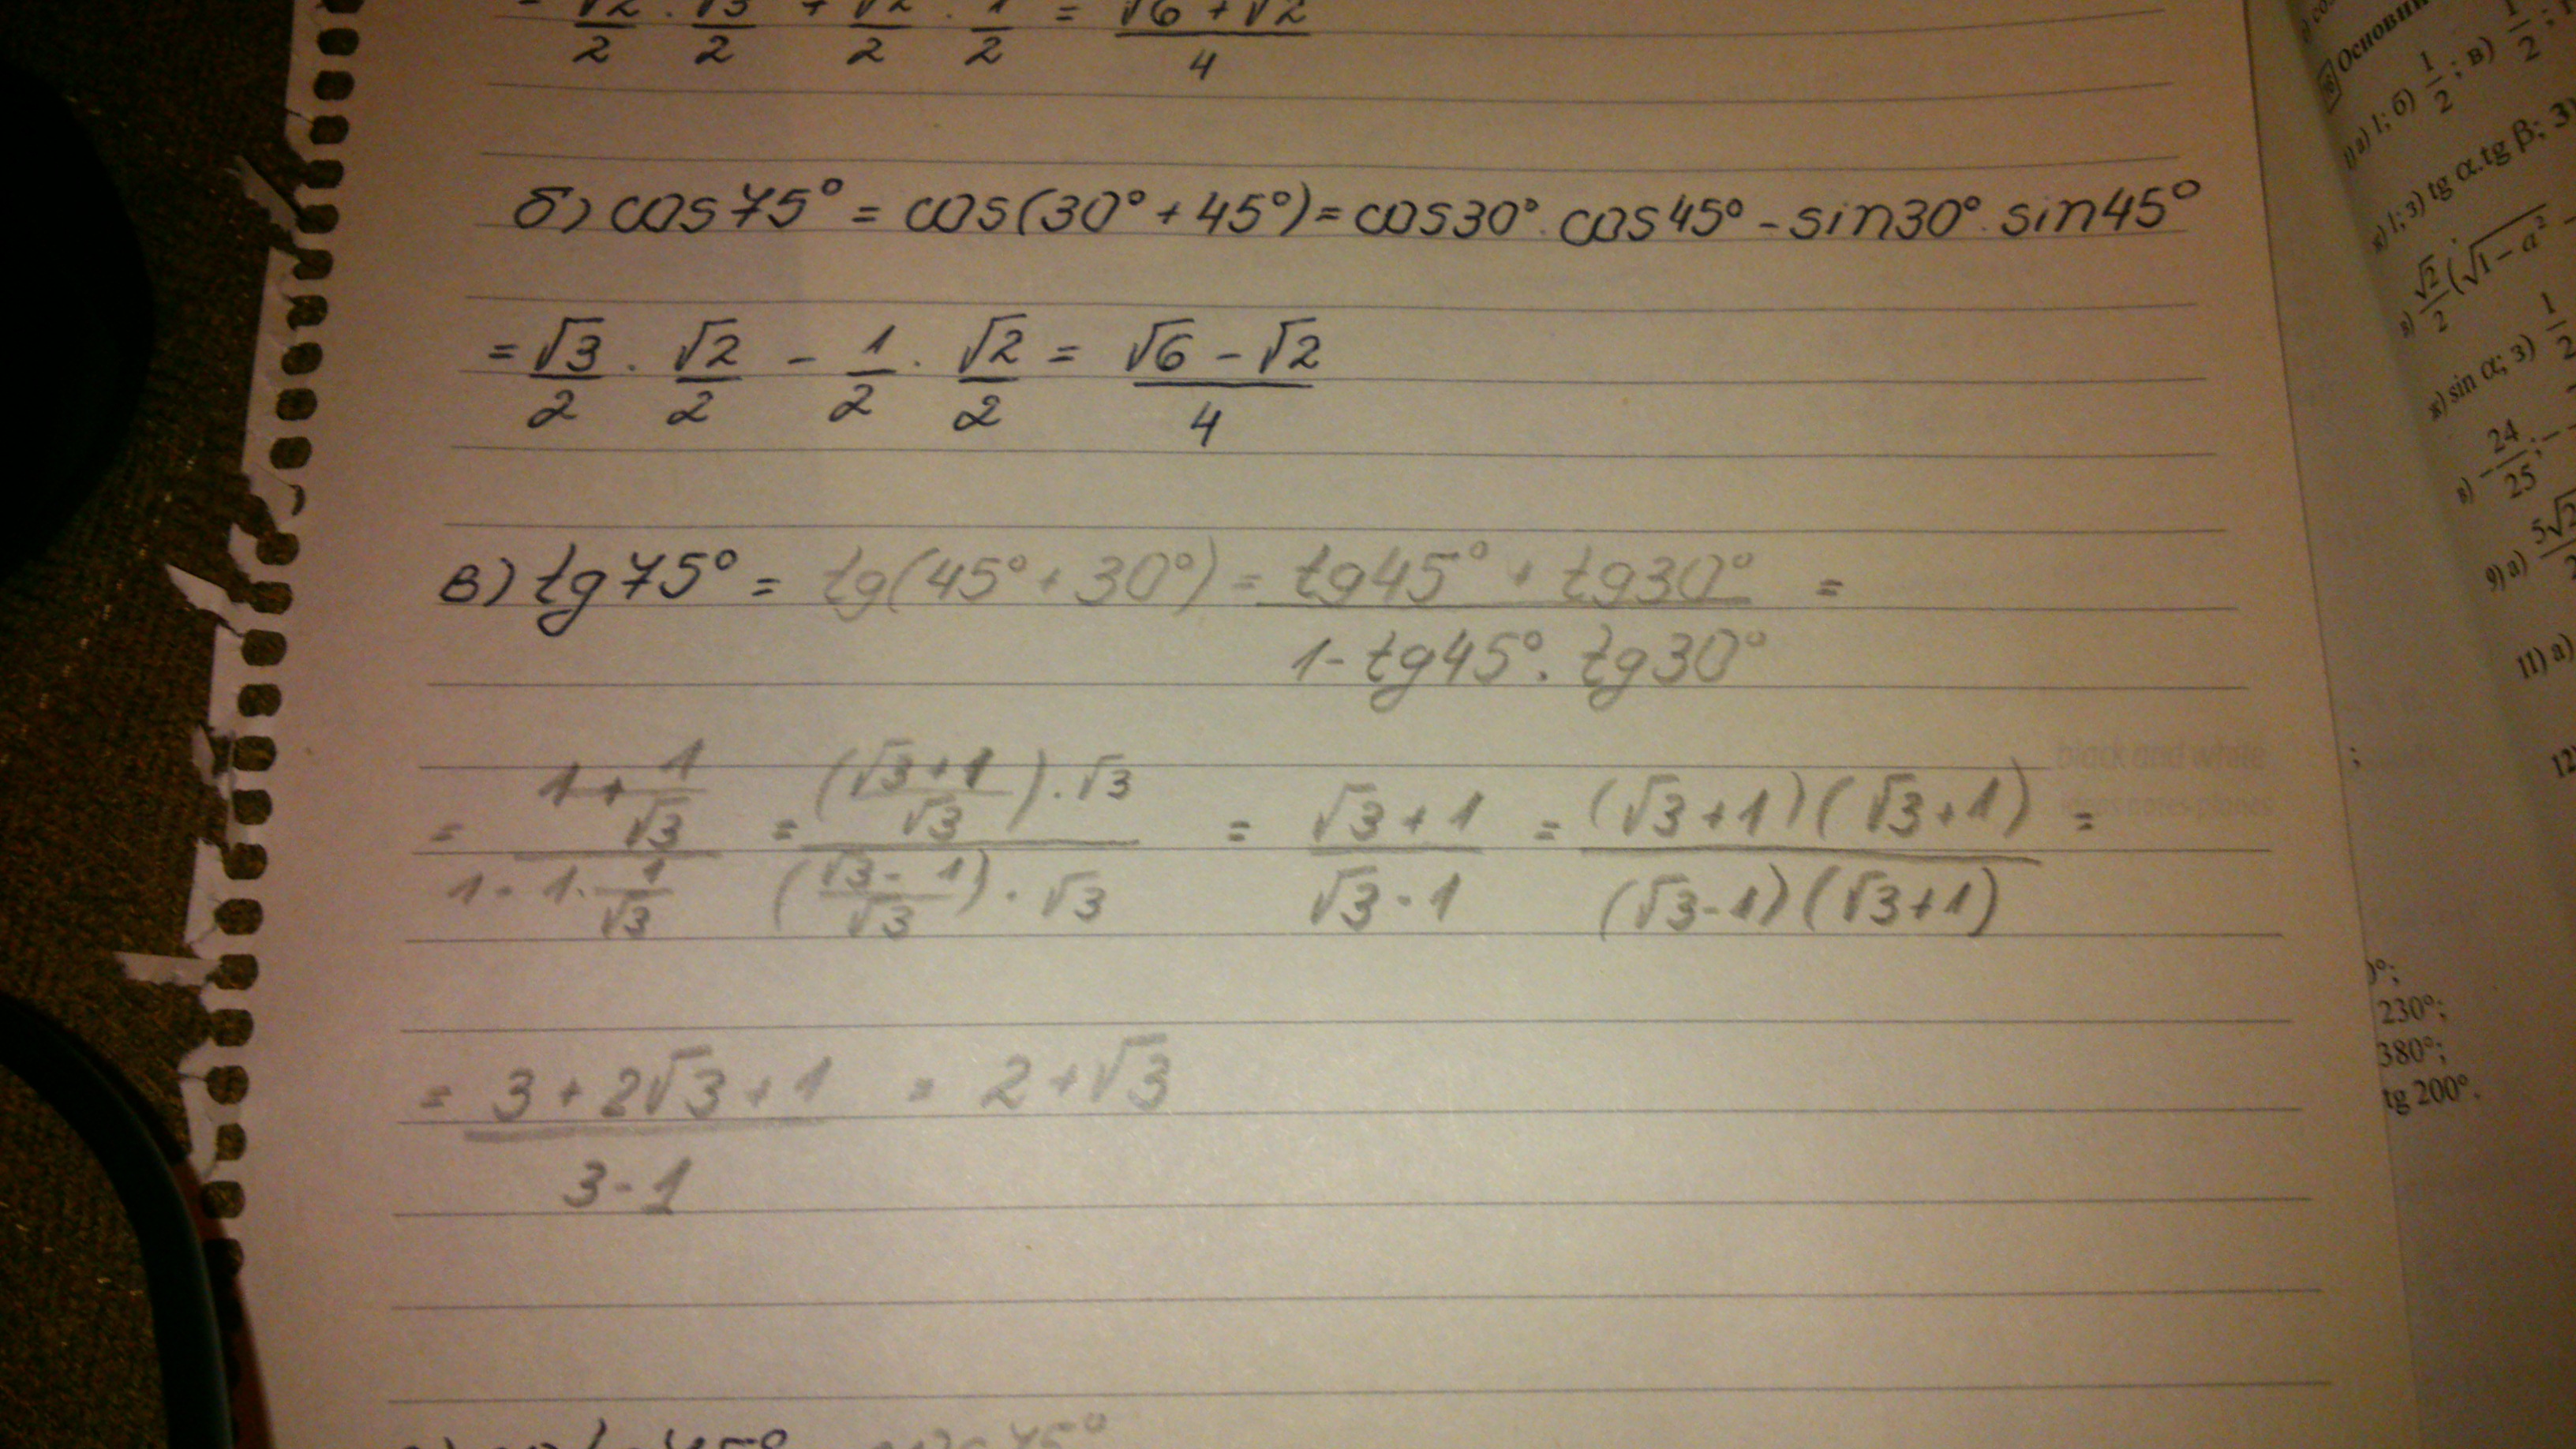 = √2/2 · √3/2 + √2/2 · 1/2 = (√6 + √2)/4
б) cos75° = cos(30° + 45°) = cos30° · cos45° - sin30° · sin45°
= √3/2 · √2/2 - 1/2 · √2/2 = (√6 - √2)/4
в) tg75° = tg(45° + 30°) = (tg45° + tg30°)/(1 - tg45° · tg30°) =
= (1 + 1/√3)/(1 - 1 · 1/√3) = (((√3 + 1)/√3) · √3)/(((√3 - 1)/√3) · √3) = (√3 + 1)/(√3 - 1) = ((√3 + 1)(√3 + 1))/((√3 - 1)(√3 + 1)) =
= (3 + 2√3 + 1)/(3 - 1) = 2 + √3
black and white
1) а) 1; б) 1/2; в) 1/2;
ж) 1; з) tg α.tg β; 3)
в) √2/2 (√1 - a²
ж) sin α; з) 1/2
в) - 24/25; -
9) а) 5√2
11) а)
12)
;
0°;
230°;
380°;
tg 200°.